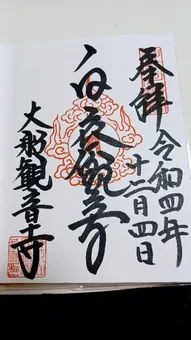 奉拝
令和四年
十二月四日
白衣観音
大船観音寺